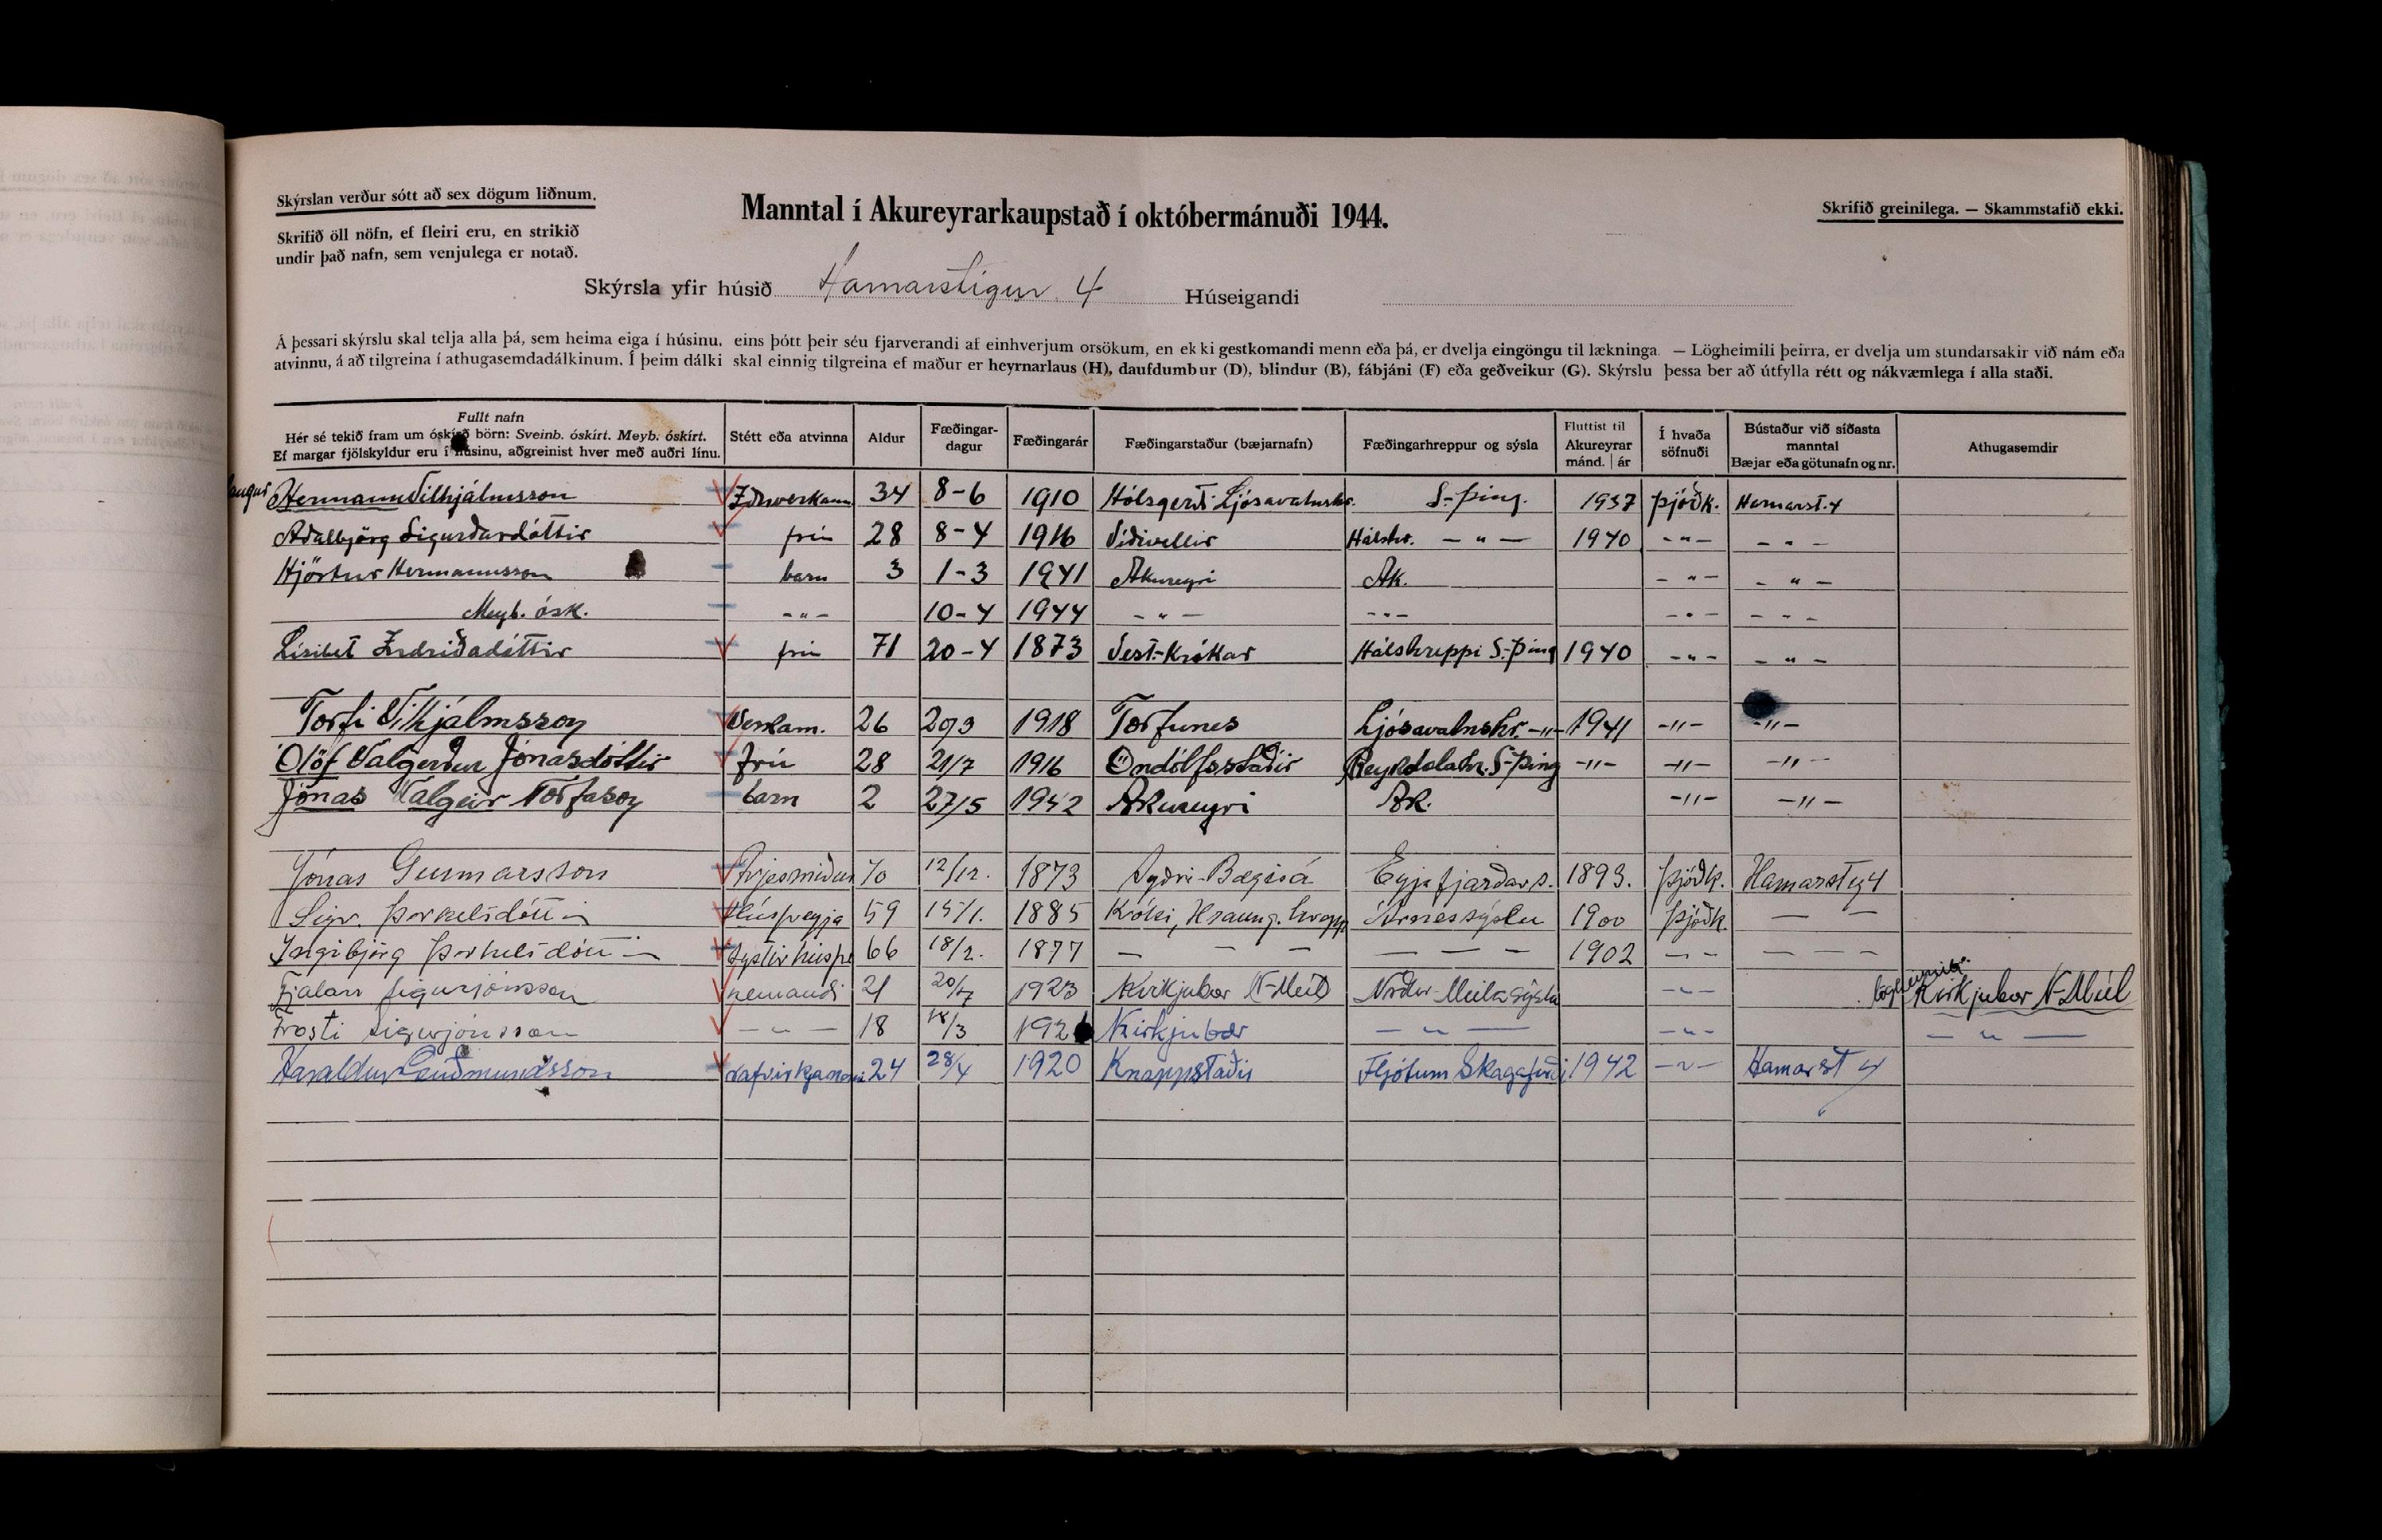 Skýrslan verður sótt að sex dögum liðnum.
Skrifið öll nöfn, ef fleiri eru, en strikið
undir það nafn, sem venjulega er notað.
Manntal í Akureyrarkaupstað í októbermánuði 1944.
Skrifið greinilega. — Skammstafið ekki.
Skýrsla yfir húsið Hamarstígur 4 Húseigandi
Á þessari skýrslu skal telja alla þá, sem heima eiga í húsinu, eins þótt þeir séu fjarverandi af einhverjum orsökum, en ekki gestkomandi menn eða þá, er dvelja eingöngu til lækninga. — Lögheimili þeirra, er dvelja um stundarsakir við nám eða
atvinnu, á að tilgreina í athugasemdadálkinum. Í þeim dálki skal einnig tilgreina ef maður er heyrnarlaus (H), daufdumbur (D), blindur (B), fábjáni (F) eða geðveikur (G). Skýrslu þessa ber að útfylla rétt og nákvæmlega í alla staði.
Fullt nafn
Hér sé tekið fram um óskírð börn: Sveinb. óskírt. Meyb. óskírt.
Ef margar fjölskyldur eru í húsinu, aðgreinist hver með auðri línu.
Stétt eða atvinna
Aldur
Fæðingar-
dagur
Fæðingarár
Fæðingarstaður (bæjarnafn)
Fæðingarhreppur og sýsla
Fluttist til
Akureyrar
mánd. | ár
Í hvaða
söfnuði
Bústaður við síðasta
manntal
Bæjar eða götunafn og nr.
Athugasemdir
Hermann Vilhjálmsson 34 8-6 1910 Hólsgerði Ljósavatnshr. S-Þing. 1937 Þjóðk. Hamarst. 4
Aðalbjörg Sigurðardóttir frú 28 8-4 1916 Víðivellir Hálshr. — " — 1940 - " - - " -
Hjörtur Hermannsson barn 3 1-3 1941 Akureyri Ak. - " - - " -
Meyb. ósk. - " - 10-4 1944 - " - - " - - " - - " -
Lísibet Indriðadóttir frú 71 20-4 1873 Vest-Krókar Hálshreppi S-Þing 1940 - " - - " -
Torfi Vilhjálmsson Verkam. 26 29/3 1918 Torfunes Ljósavatnshr. -"- 1941 -"- -"-
Ólöf Valgerður Jónasdóttir frú 28 21/7 1916 Öndólfsstaðir Reykdælahr. S-Þing -"- -"- -"-
Jónas Valgeir Torfason barn 2 27/5 1942 Akureyri Ak. -"- -"-
Jónas Gunnarsson Trjesmiður 70 12/12. 1873 Syðri-Bægisá Eyjafjarðars. 1893. Þjóðk. Hamarstíg 4
Sigr. Þorkelsdóttir Húsfreyja 59 15/1. 1885 Hraung. hrepp Árnessýslu 1900 Þjóðk. — —
Ingibjörg Þorkelsdóttir systir húsfr 66 18/2. 1877 — — — — — — 1902 - - — — —
Fjalar Sigurjónsson nemandi 21 20/7 1923 Kirkjubær N-Múl Norður-Múlasýslu - " - lögheimili. Kirkjubær N-Múl
Frosti Sigurjónsson — " — 18 /3 192 Kirkjubær — " — - " - — " —
Haraldur Guðmundsson rafvirkjanemi 24 28/4 1920 Knappstaðir Fljótum Skagafirði 1942 - " - Hamarst 4